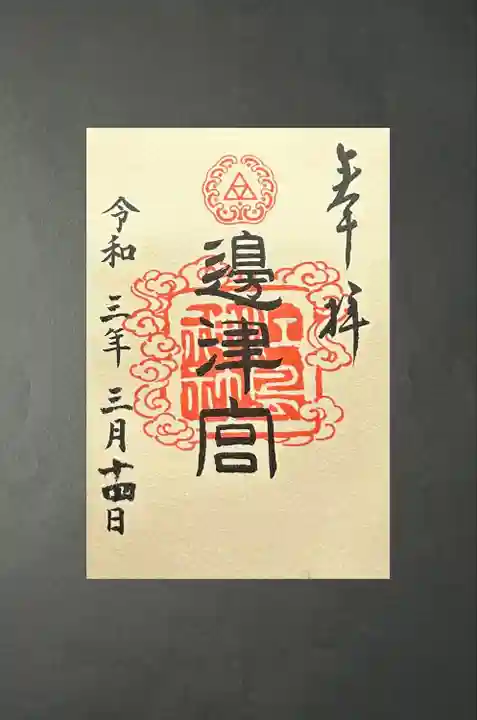 奉拝
邊津宮
令和三年三月十四日